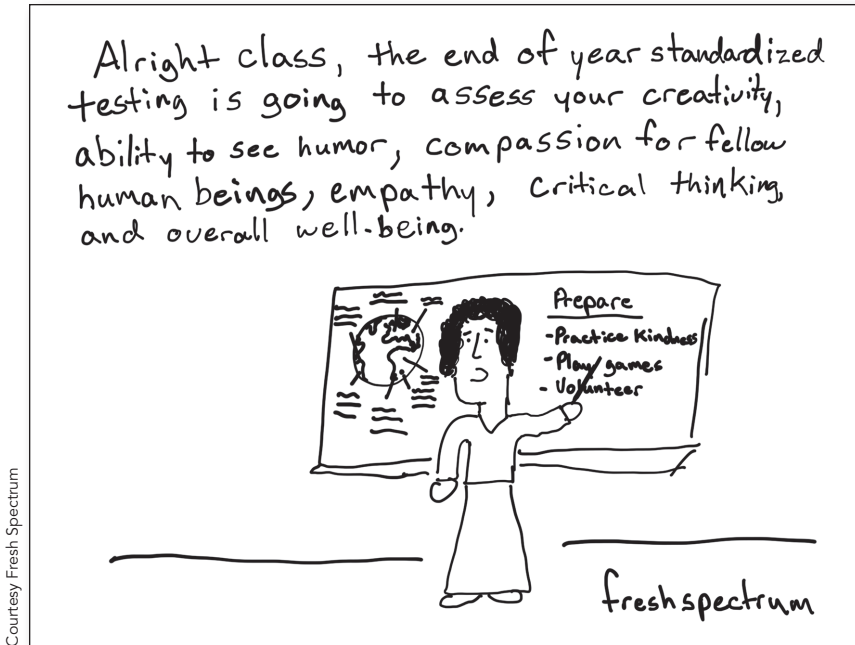 Alright class, the end of year standardized
testing is going to assess your creativity,
ability to see humor, compassion for fellow
human beings, empathy, critical thinking,
and overall well-being.
Prepare
-Practice Kindness
-Play games
- Volunteer
freshspectrum
Courtesy Fresh Spectrum